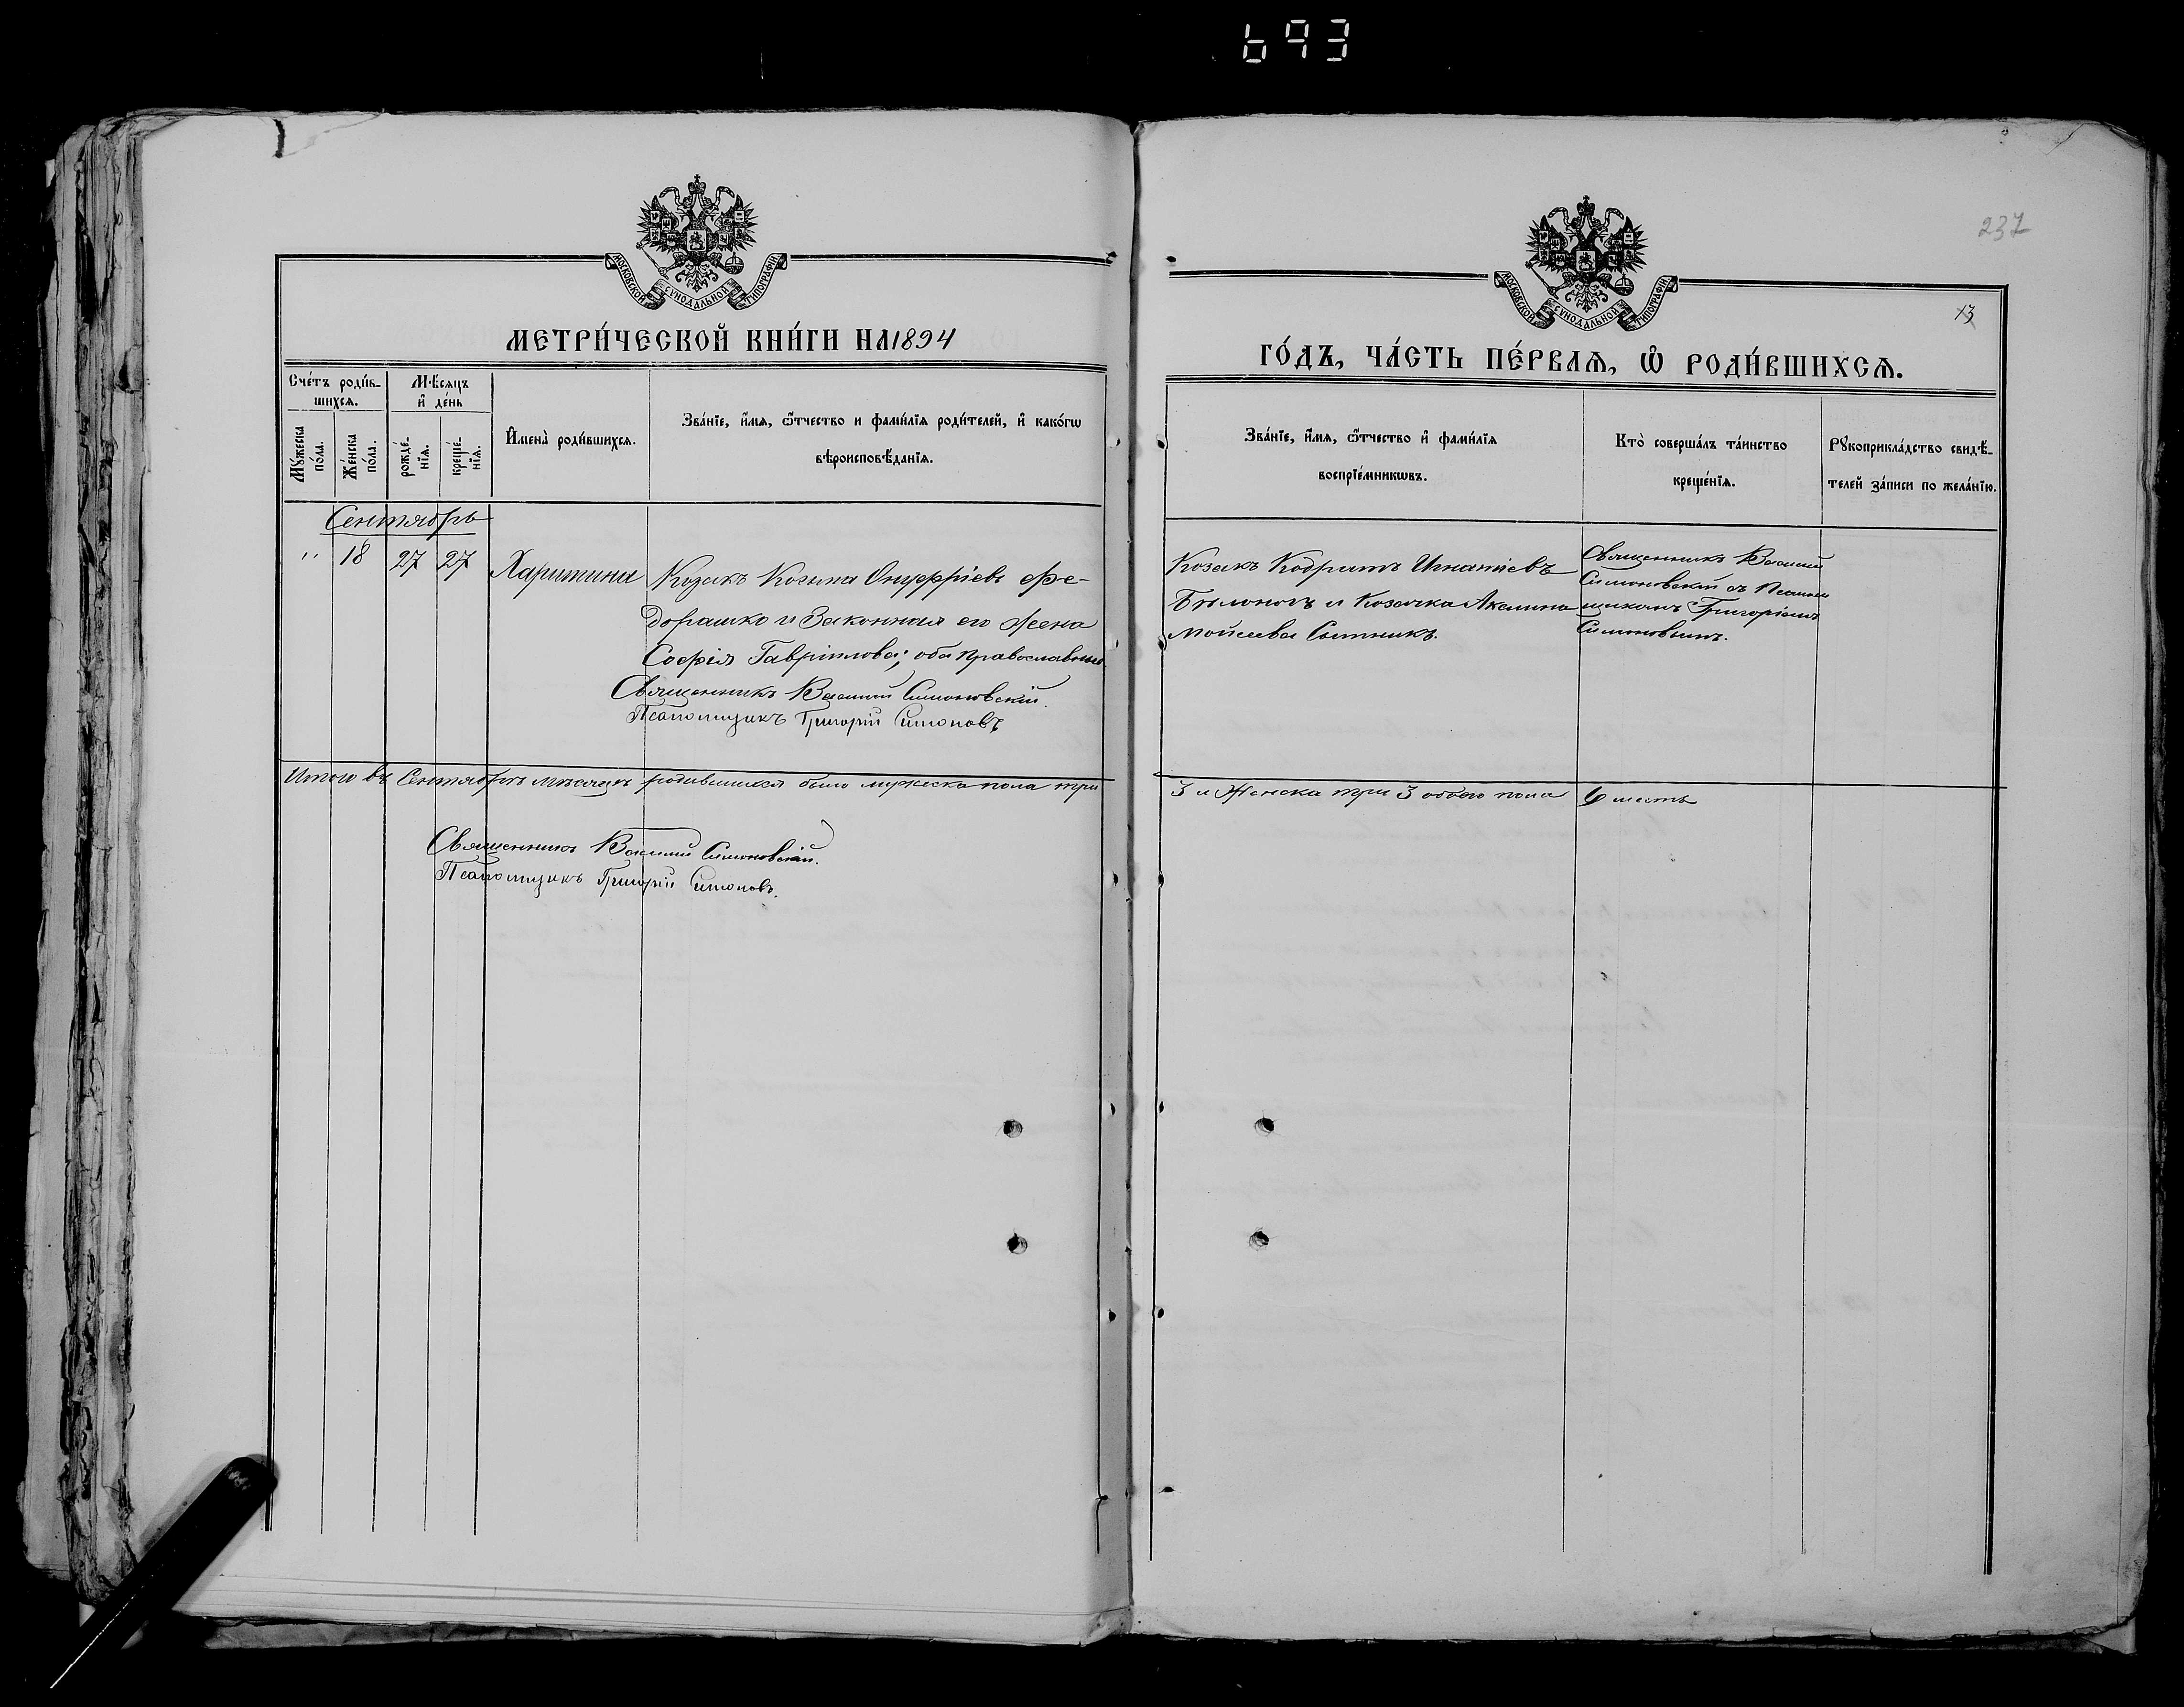 693
237
13
МОСКОВСКОЙ СѴНОДАЛЬНОЙ ТИПОГРАФІИ
МОСКОВСКОЙ СѴНОДАЛЬНОЙ ТИПОГРАФІИ
МЕТРИ́ЧЕСКОЙ КНИ́ГИ НА 1894
ГО́ДЪ, ЧА́СТЬ ПЕ́РВАѦ, Ѡ҆ РОДИ́ВШИХСѦ.
Сче́тъ роди́в-
шихсѧ.
Мꙋ́жеска
по́ла.
Же́нска
по́ла.
Мѣ́сѧцъ
и҆ де́нь
рожде́-
нїѧ.
креще́-
нїѧ.
И҆мена̀ роди́вшихсѧ.
Зва́нїе, и҆́мѧ, ѻ҆́тчество и фами́лїѧ роди́телей, и҆ како́гѡ
вѣроисповѣ́данїѧ.
Зва́нїе, и҆́мѧ, ѻ҆́тчество и҆ фами́лїѧ
воспрїе́мникѡвъ.
Кто̀ соверша́лъ та́инство
креще́нїѧ.
Рꙋкоприкла́дство свидѣ́-
телей за́писи по жела́нїю.
Сентябрь
" 18 27 27 Харитина
Козакъ Козьма Онуфріевъ Фе-
дорашко и Законная его Жена
Софія Гавріилова; оба Православные.
Священникъ Василий Симоновскій.
Псаломщикъ Григорій Симоновъ
Козакъ Кодратъ Игнатіевъ
Бѣлоногъ и Козачка Акилина
Мойсеева Сытникъ.
Священникъ Василій
Симоновскій съ Псалом
щикомъ Григоріемъ
Симоновымъ.
Итого въ Сентябрѣ мѣсяцѣ родившихся было мужеска пола три
3 и Женска три 3 обоего пола 6 шесть
Священникъ Василий Симоновскій.
Псаломщикъ Григорій Симоновъ.